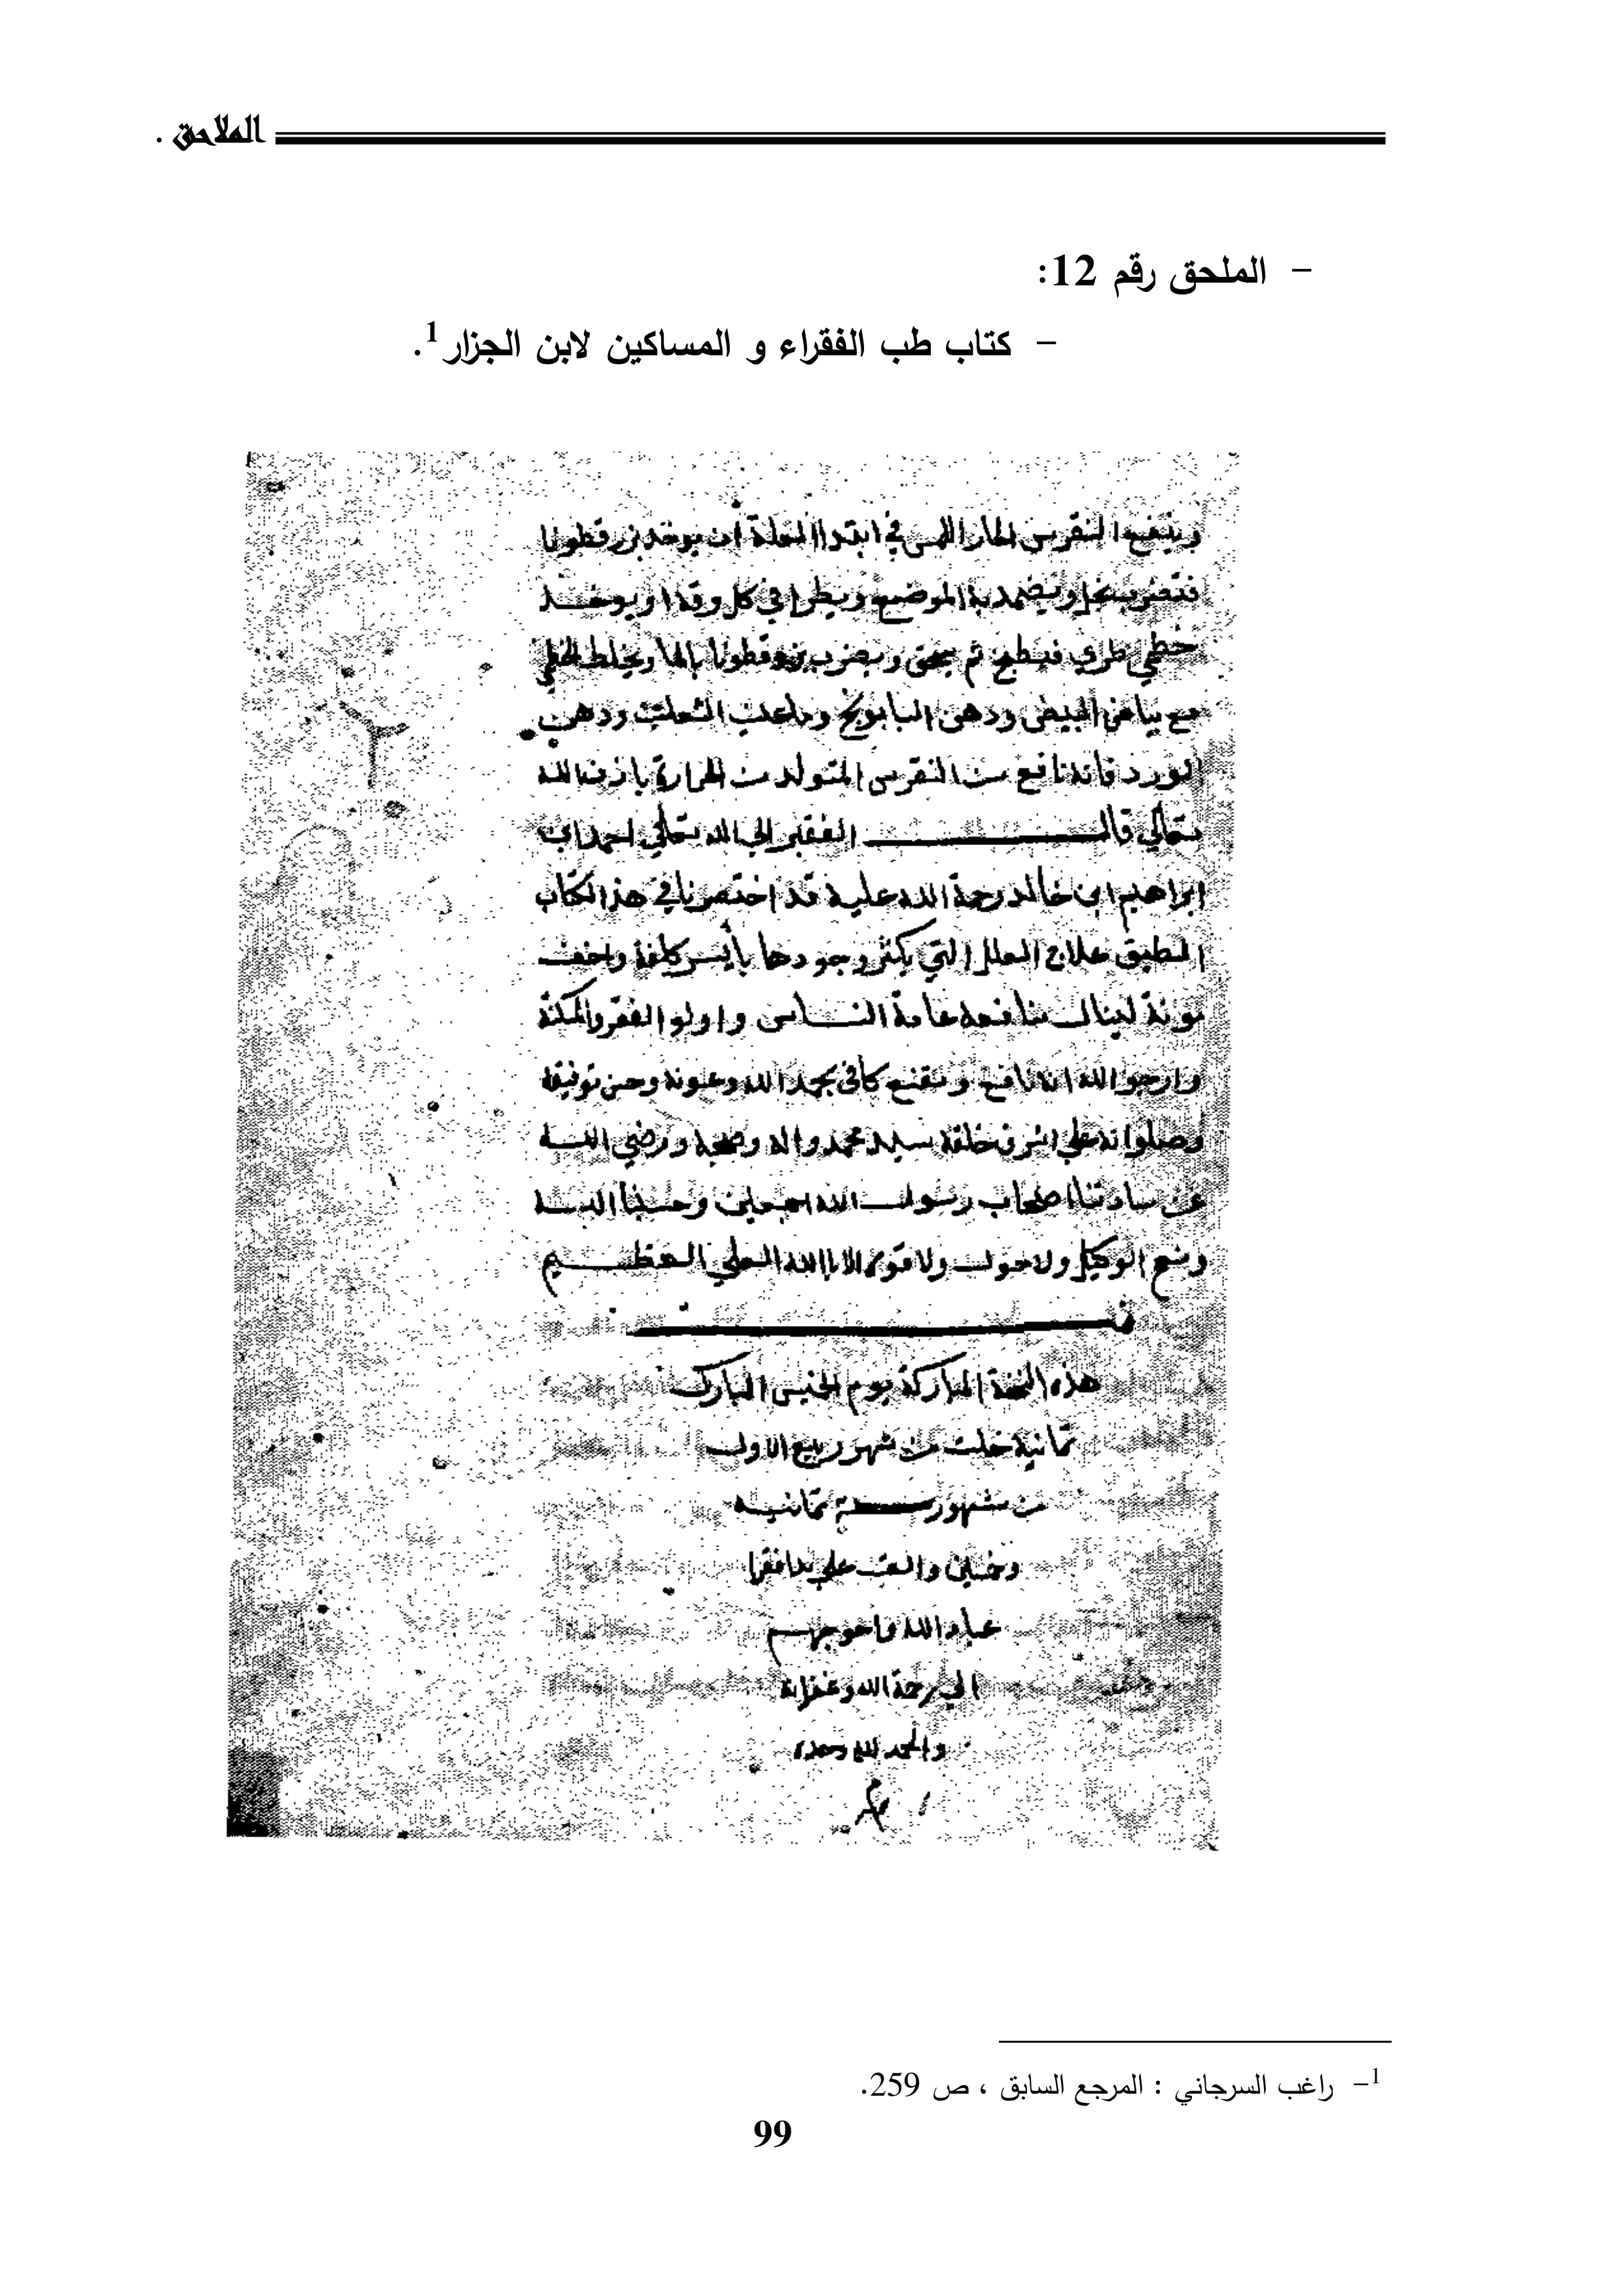 الملاحق .
- الملحق رقم 12:
- كتاب طب الفقراء و المساكين لابن الجزار1.
وينفع النقرس الحار اللهبي في ابتدا العلة أن يوخد بزرقطونا
فتضرب بخل ويضمد به الموضع ويطرا في كل وقت او يوخد
خطمي طري فيطبخ ثم يسحق ويضرب بزرقطونا بالما ويخلط الخطمي
مع بياض البيض ودهن البابونج وما عنب الثعلب ودهن
الورد فانه نافع من النقرس المتولد من الحرارة باذن الله
تعالي قال الفقير الي الله تعالي احمد ابن
ابراهيم ابن خالد رحمة الله عليه قد اختصرنا في هذا الكتاب
اللطيف علاج العلل التي يكثر وجودها بأيسر كلفة واخف
مونة لينال منافعه عامة الناس واولوا الفقر والمسكنة
وارجو الله انه نافع ومقنع كافي بحمد الله وعونه وحسن توفيقه
وصلواته علي اشرف خلقه سيد محمد واله وصحبه ورضي الله
عن ساداتنا اصحاب رسول الله اجمعين وحسبنا الله
ونعم الوكيل ولا حول ولا قوة الا بالله العلي العظيم
هذه النسخة المباركة يوم الخميس المبارك
ثمانية خلت من شهر ربيع الاول
من شهور سنة ثمانيه
وخمسين والف علي يد افقر
عباد الله واحوجهم
الي رحمة الله وغفرانه
والحمد لله وحده
1- راغب السرجاني : المرجع السابق ، ص 259.
99